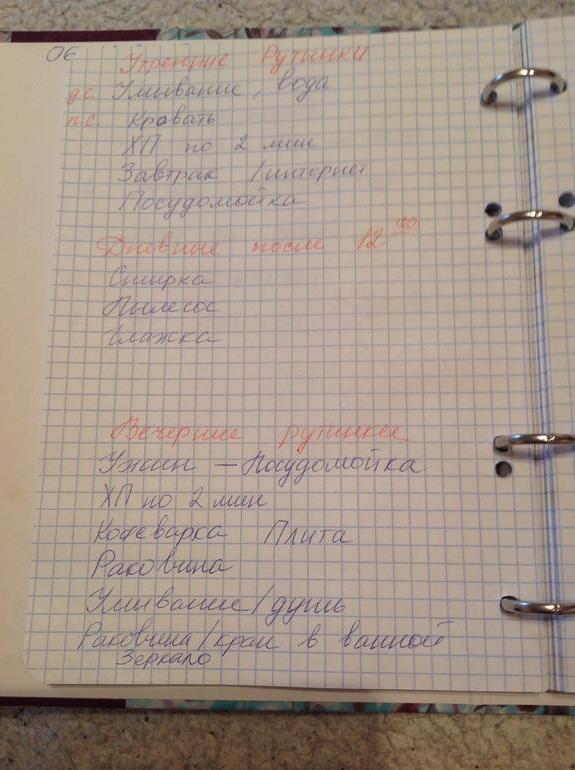 06 Утренние Рутинки
дс Умывание, вода
пс кровать
ХП по 2 мин
Завтрак /интернет
Посудомойка
Дневные после 12⁰⁰
Стирка
Пылесос
Глажка
Вечерние рутинки
Ужин – Посудомойка
ХП по 2 мин
Кофеварка Плита
Раковина
Умывание/душ
Раковина/кран в ванной
Зеркало